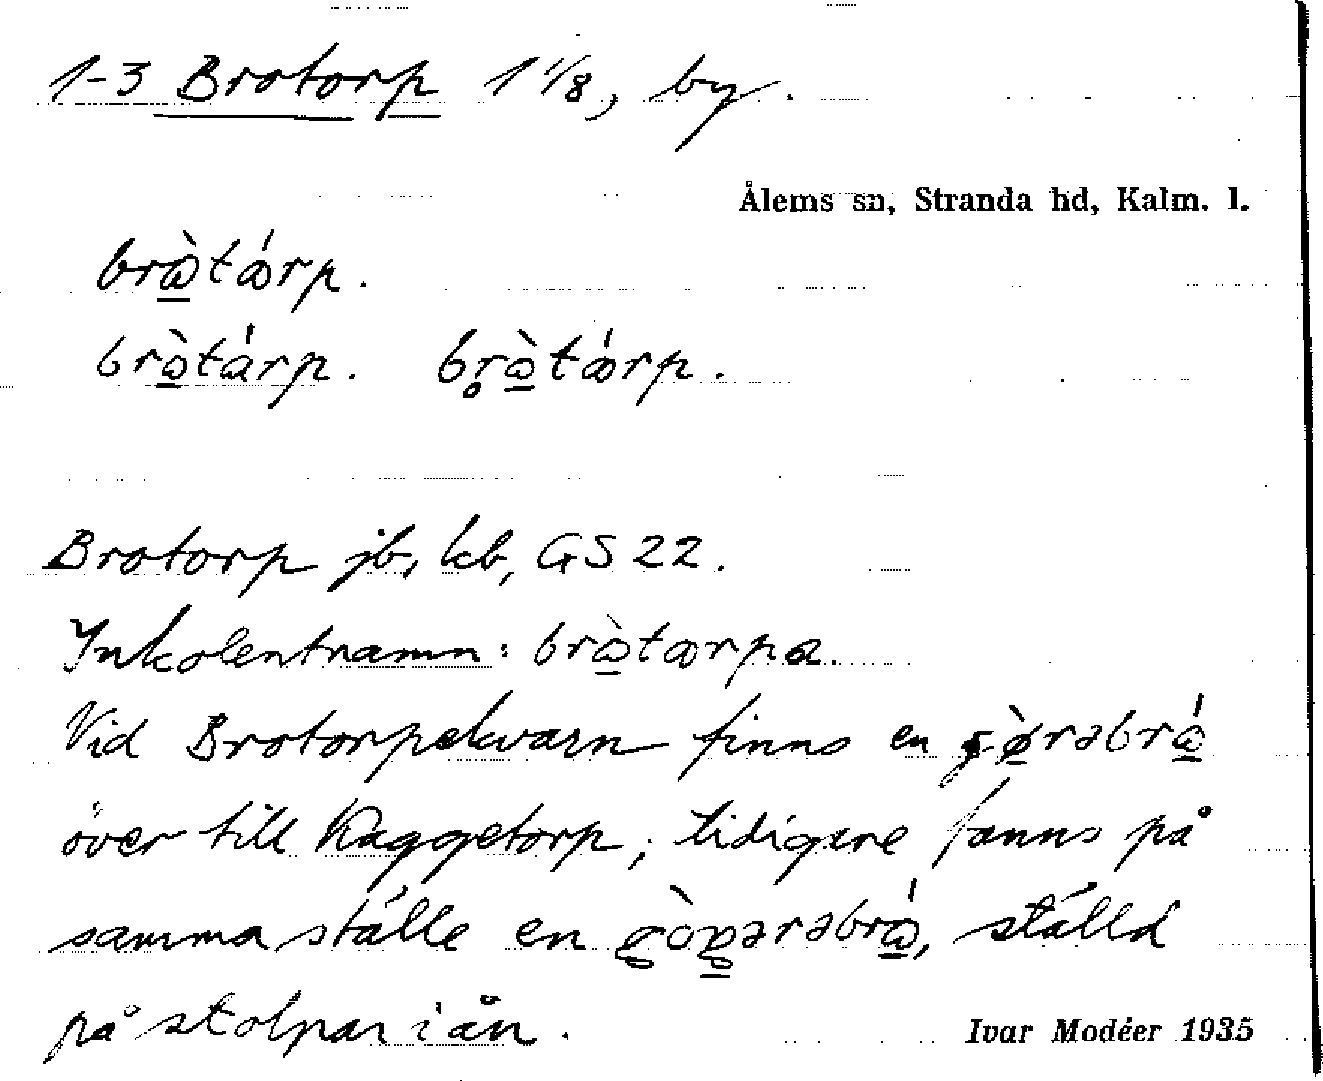 1-3 Brotorp 1 1/8, by.
Ålems sn, Stranda hd, Kalm. l.
Brotorp jb, kb, GS 22.
Inkolentnamn:
Vid Brotorpekvarn finns en
över till Kaggetorp; tidigare fanns på
samma ställe en ställd
på stolpar i ån.
Ivar Modéer 1935